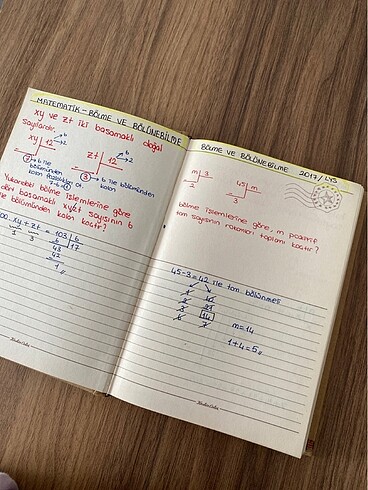 MATEMATİK - BÖLME VE BÖLÜNEBİLME
xy ve zt iki basamaklı doğal
sayılardır.
xy 12 → 6
→ 2
7 → 6 ile
bölümünden
zt 12 → 6
→ 2
3 → 6 ile
bölümünden
kalan
Yukarıdaki bölme işlemlerine göre
dört basamaklı xyzt sayısının 6
ile bölümünden kalan kaçtır?
00. xy + zt = 103 6
1 3 6 17
43
42
1
BÖLME VE BÖLÜNEBİLME 2017/LYS
m 3
2
45 m
3
bölme işlemlerine göre, m pozitif
tam sayısının rakamları toplamı kaçtır?
45-3=42 ile tam bölünmeli
1 42
2 21
3 14
6 7
m=14
1+4=5